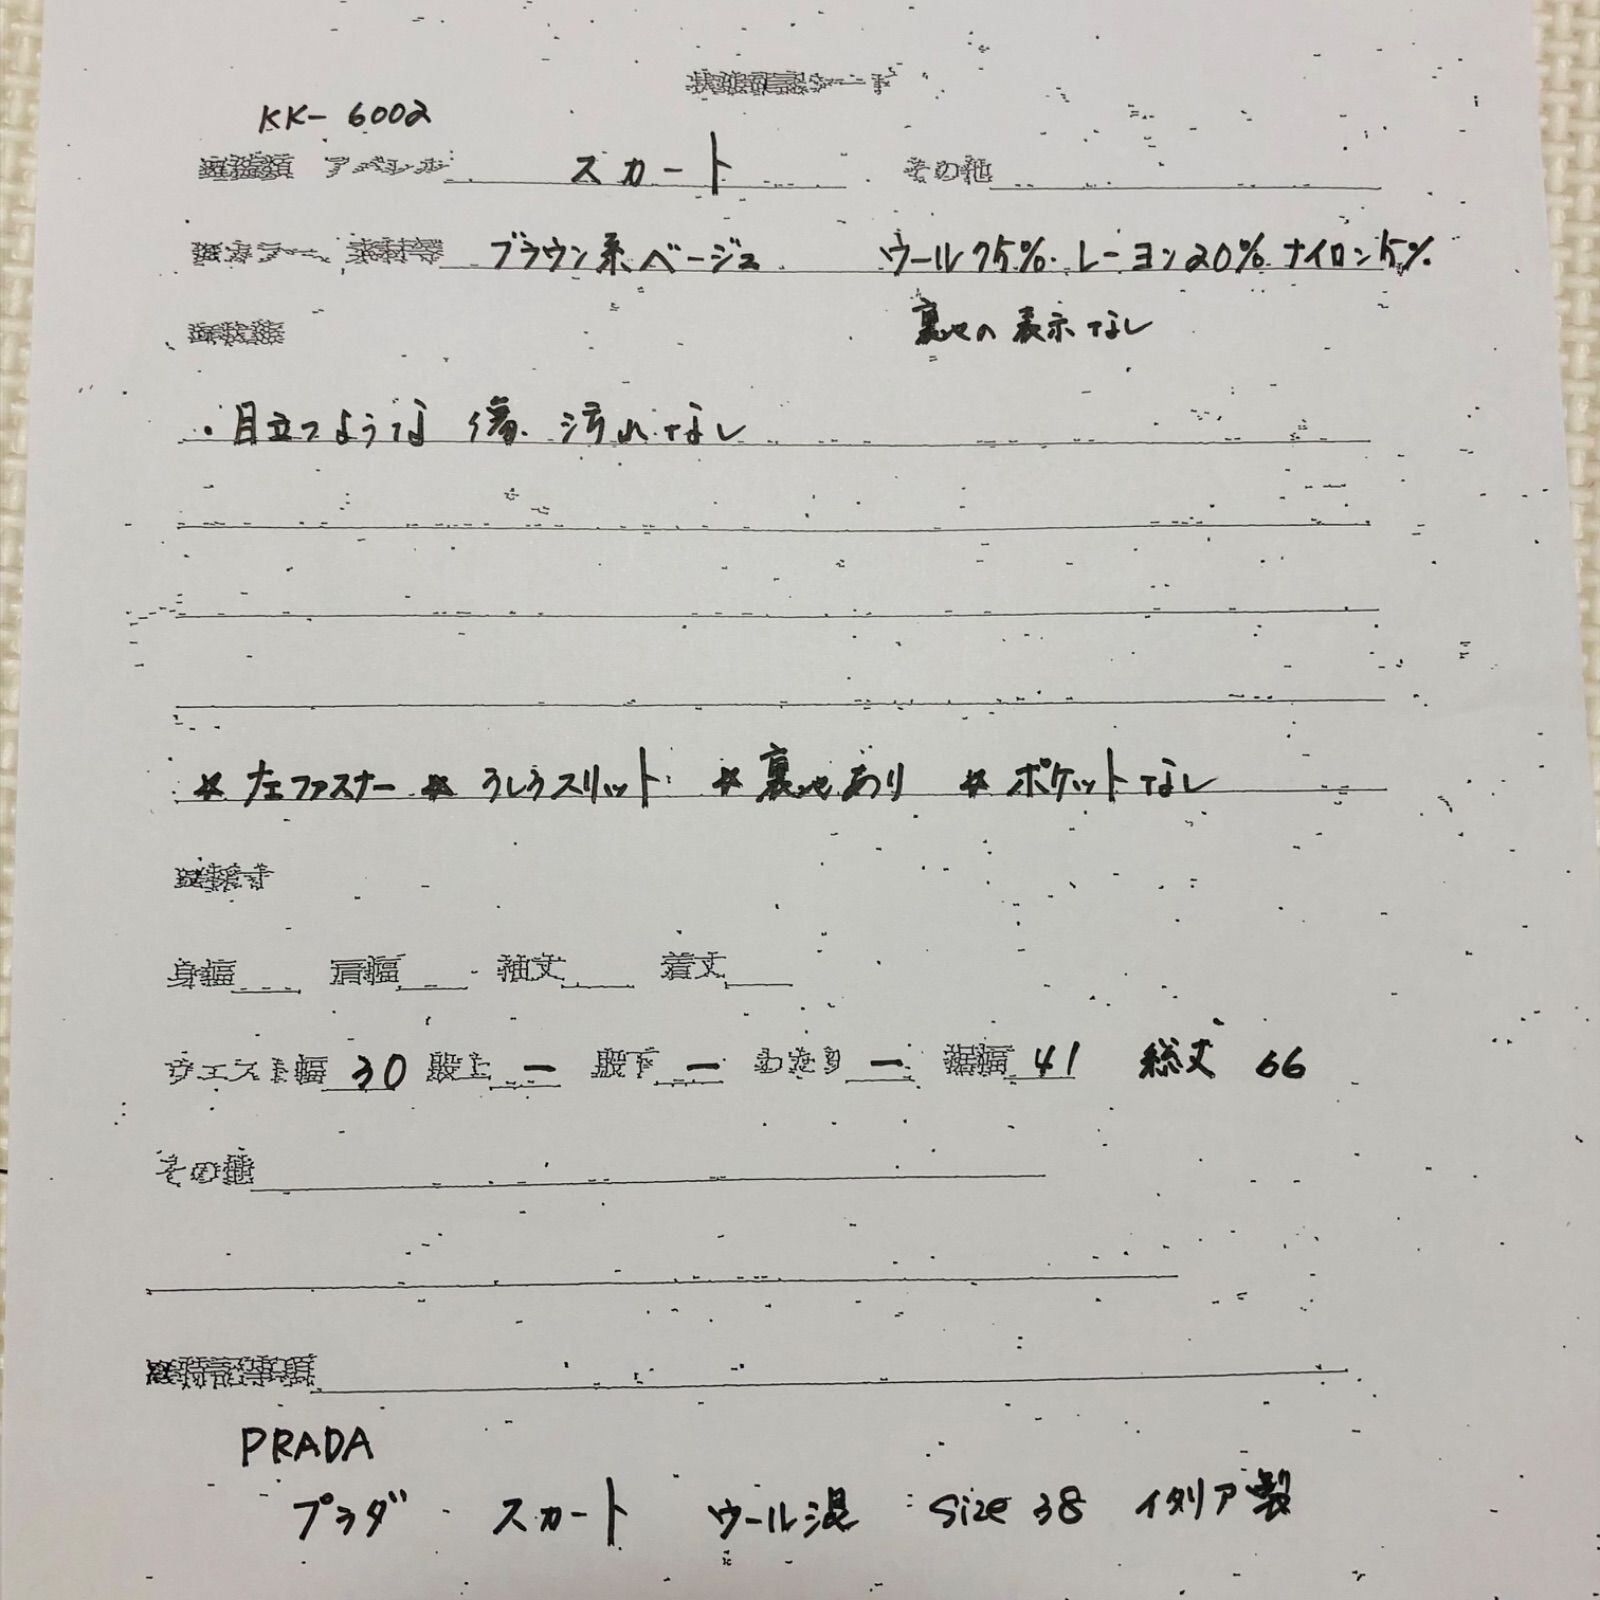 状態確認シート
KK-6002
アパレル スカート その他
カラー 素材等 ブラウン系ベージュ ウール75%. レーヨン20% ナイロン5%
裏地の表示なし
・目立つような 傷. 汚れ.なし
* 左ファスナー * うしろスリット * 裏地あり * ポケットなし
身幅 肩幅 袖丈 着丈
ウエスト幅 30 股上 ー 股下 ー わたり ー 裾幅 41 総丈 66
その他
特記事項
PRADA
プラダ スカート ウール混 size 38 イタリア製